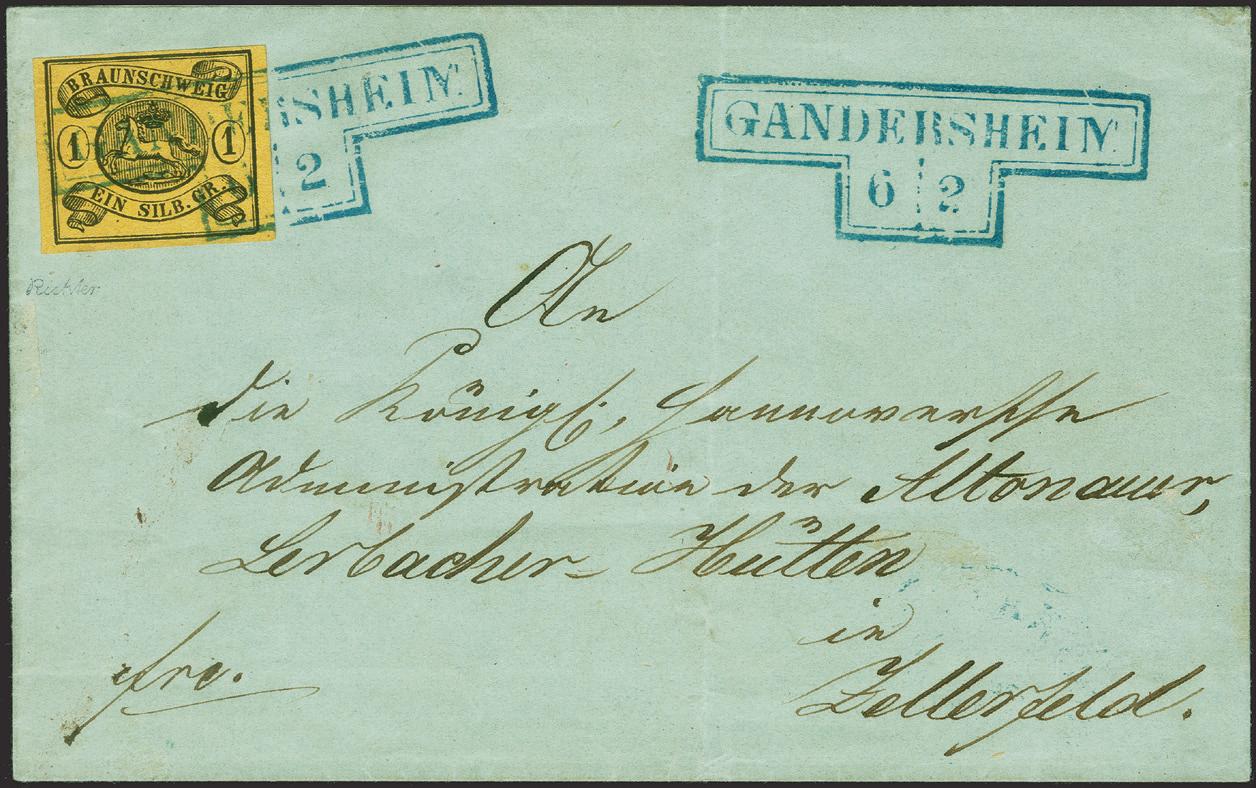 BRAUNSCHWEIG
1 1
EIN SILB. GR.
RSHEIM
2
GANDERSHEIM
6 2
Richter
An
die Königl. Hannoversche
Administration der Altonauer,
Lerbacher- Hütten
in
Zellerfeld.
fro.